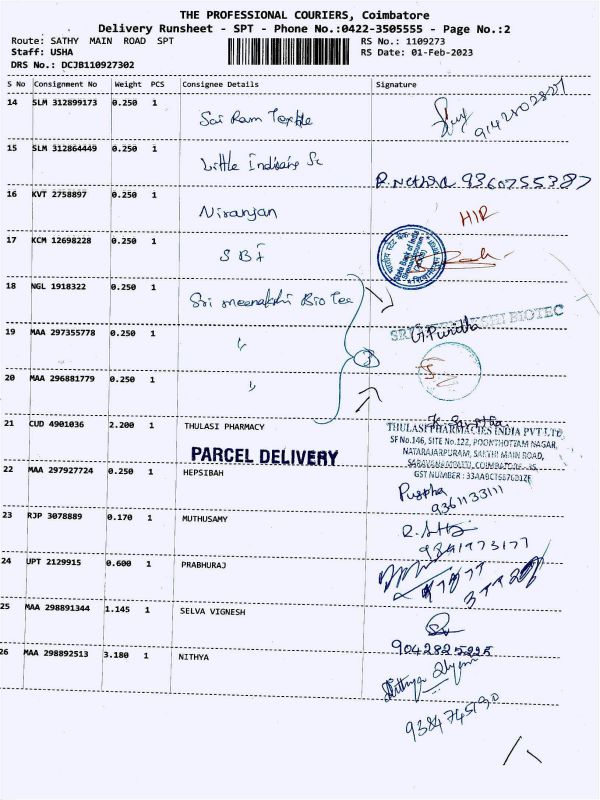 THE PROFESSIONAL COURIERS, Coimbatore
Delivery Runsheet - SPT - Phone No.:0422-3505555 - Page No.:2
Route: SATHY MAIN ROAD SPT
RS No.: 1109273
Staff: USHA
RS Date: 01-Feb-2023
DRS No.: DCJB110927302
S No Consignment No Weight PCS Consignee Details Signature
14 SLM 312899173 0.250 1 Sai Ram Textile
15 SLM 312864449 0.250 1 Little Indians Sc R. Nethra 9360755387
16 KVT 2758897 0.250 1 Niranjan
17 KCM 12698228 0.250 1 S B I
State Bank of India
18 NGL 1918322 0.250 1 Sri meenakshi Bio Tec
19 MAA 297355778 0.250 1 "
3
20 MAA 296881779 0.250 1 "
21 CUD 4901036 2.200 1 THULASI PHARMACY
THULASI PHARMACIES INDIA PVT LTD
SF No.146, SITE No.122, POONTHOTTAM NAGAR,
NATARAJARPURAM, SAKTHI MAIN ROAD,
PARCEL DELIVERY
22 MAA 297927724 0.250 1 HEPSIBAH Puspha
9361133111
23 RJP 3078889 0.170 1 MUTHUSAMY
9841973177
24 UPT 2129915 0.600 1 PRABHURAJ
25 MAA 298891344 1.145 1 SELVA VIGNESH
9042825225
26 MAA 298892513 3.180 1 NITHYA
9384745190